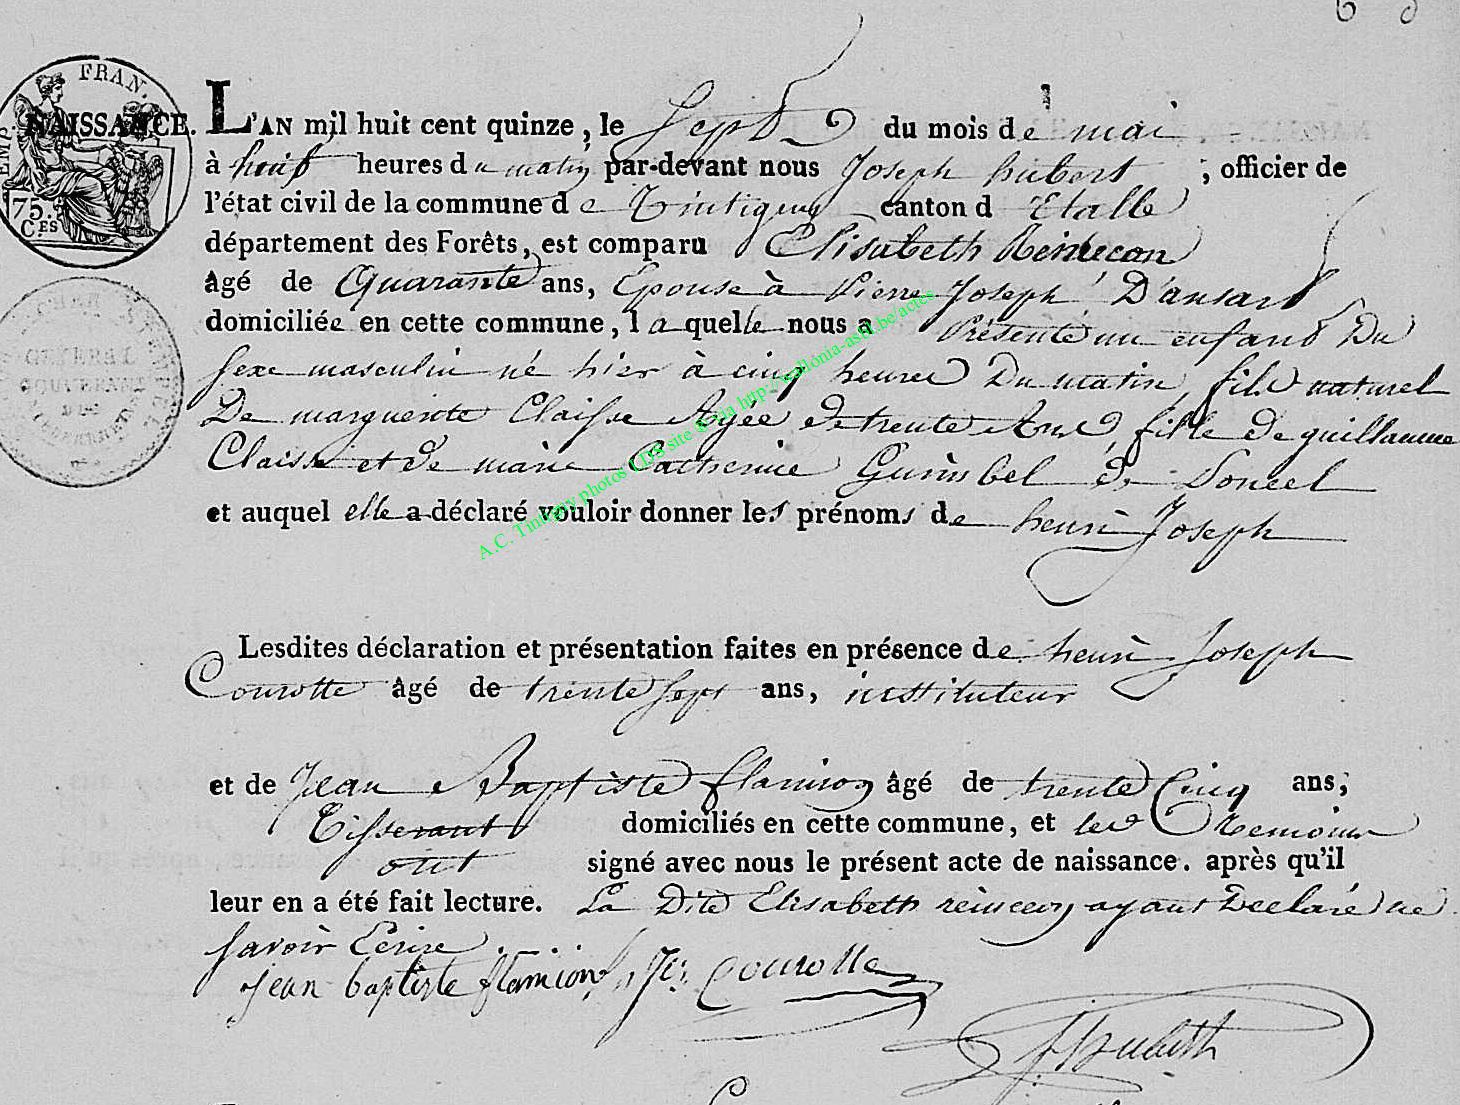 FRAN.
EMP.
75.
C.ES
NAISSANCE. L'AN mil huit cent quinze, le Sept du mois de mai
à huit heures du matin par-devant nous Joseph hubert, officier de
l'état civil de la commune de Tintigny canton d Etalle
département des Forêts, est comparu Elisabeth
âgé de Quarante ans, Epouse à Pierre Joseph D'ansart
domiciliée en cette commune, laquelle nous a Présenté un enfant Du
Sexe masculin né hier à cinq heures Du matin fils naturel
De marguerite Claisse Agée de trente Ans fille de guillaume
Claisse et de marie Catherine de
et auquel elle a déclaré vouloir donner les prénoms de henri Joseph
Lesdites déclaration et présentation faites en présence de henri Joseph
Courotte âgé de trente Sept ans, instituteur
et de Jean Baptiste flamion âgé de trente Cinq ans,
Tisserant domiciliés en cette commune, et les Témoins
ont signé avec nous le présent acte de naissance. après qu'il
leur en a été fait lecture. La Dite Elisabeth ayant Declaré ne
Savoir Ecrire.
jean baptiste flamion Courotte
Hubert
A.C. Tintigny photos LDS site via http://wallonia-asbl.be/actes